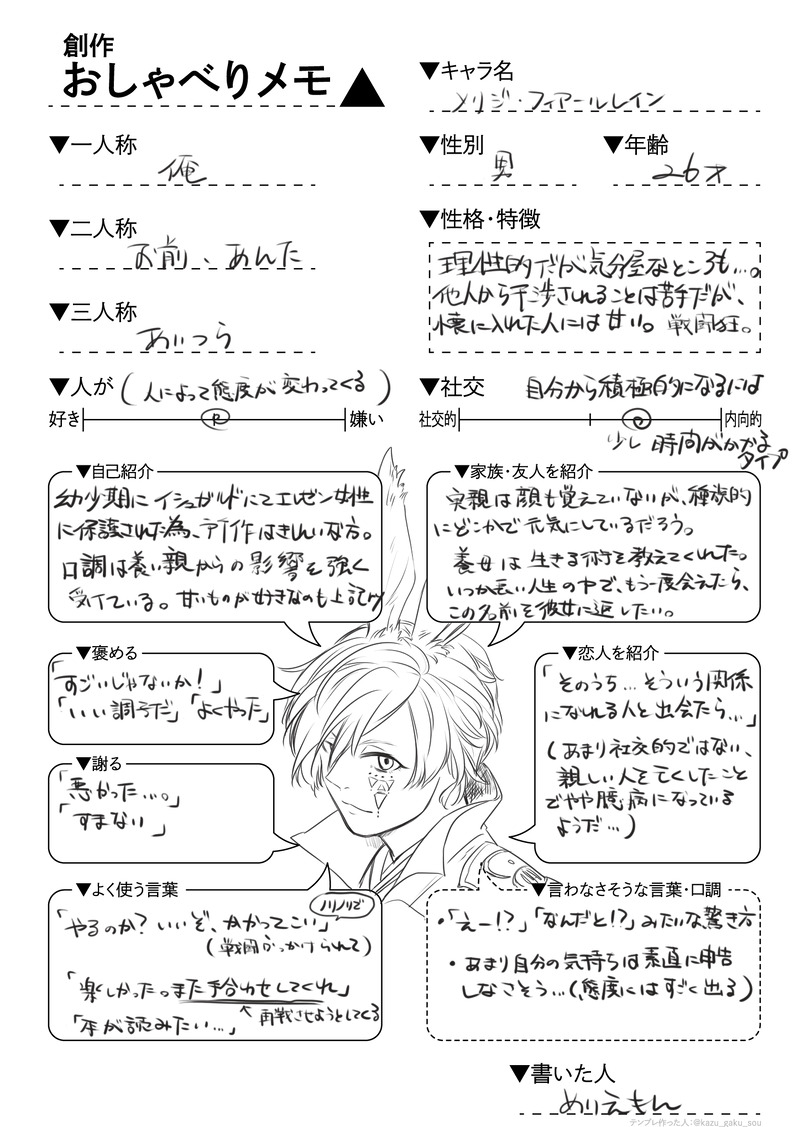 創作
おしゃべりメモ▲
▼キャラ名
メリジ・フィアールレイン
▼一人称
俺
▼性別
男
▼年齢
26才
▼二人称
お前、あんた
▼三人称
あいつら
▼性格・特徴
理性的だが気分屋なところも…。
他人から干渉されることは苦手だが、
懐に入れた人には甘い。戦闘狂。
▼人が(人によって態度が変わってくる)
好き
嫌い
▼社交 自分から積極的になるには
社交的
内向的
少し時間がかかる
タイプ
▼自己紹介
幼少期にイシュガルドにてエレゼン女性
に保護された為、所作はきれいな方。
口調は養い親からの影響を強く
受けている。甘いものが好きなのも上記
▼家族・友人を紹介
実親は顔も覚えていないが、種族的
にどこかで元気にしているだろう。
養母は生きる術を教えてくれた。
いつか長い人生の中で、もう一度会えたら、
この名前を彼女に返したい。
▼褒める
「すごいじゃないか!」
「いい調子だ」「よくやった」
▼恋人を紹介
「そのうち…そういう関係
になれる人と出会たら…」
(あまり社交的ではない、
親しい人を亡くしたこと
でやや臆病になっている
ようだ…)
▼謝る
「悪かった…。」
「すまない」
▼よく使う言葉
ノリノリで
「やるのか?いいぞ、かかってこい」
(戦闘ふっかけられて)
「楽しかった。また手合わせしてくれ」
↖再戦させようとしてくる
「本が読みたい…」
▼言わなさそうな言葉・口調
・「えー!?」「なんだと!?」みたいな驚き方
・あまり自分の気持ちは素直に申告
しなさそう…(態度にはすごく出る)
▼書いた人
めりえもん
テンプレ作った人:@kazu_gaku_sou